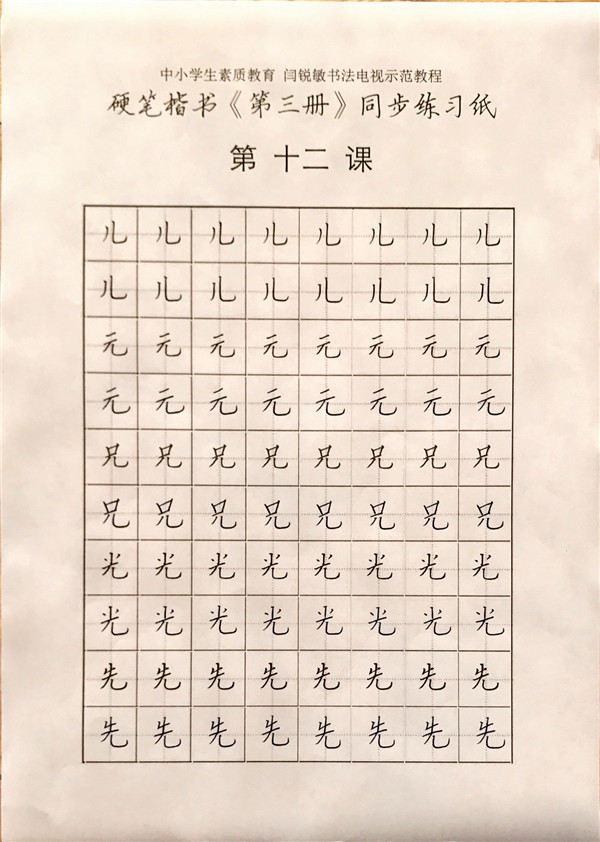 中小学生素质教育 闫锐敏书法电视示范教程
硬笔楷书《第三册》同步练习纸
第 十二 课
儿 儿 儿 儿 儿 儿 儿 儿
儿 儿 儿 儿 儿 儿 儿 儿
元 元 元 元 元 元 元 元
元 元 元 元 元 元 元 元
兄 兄 兄 兄 兄 兄 兄 兄
兄 兄 兄 兄 兄 兄 兄 兄
光 光 光 光 光 光 光 光
光 光 光 光 光 光 光 光
先 先 先 先 先 先 先 先
先 先 先 先 先 先 先 先